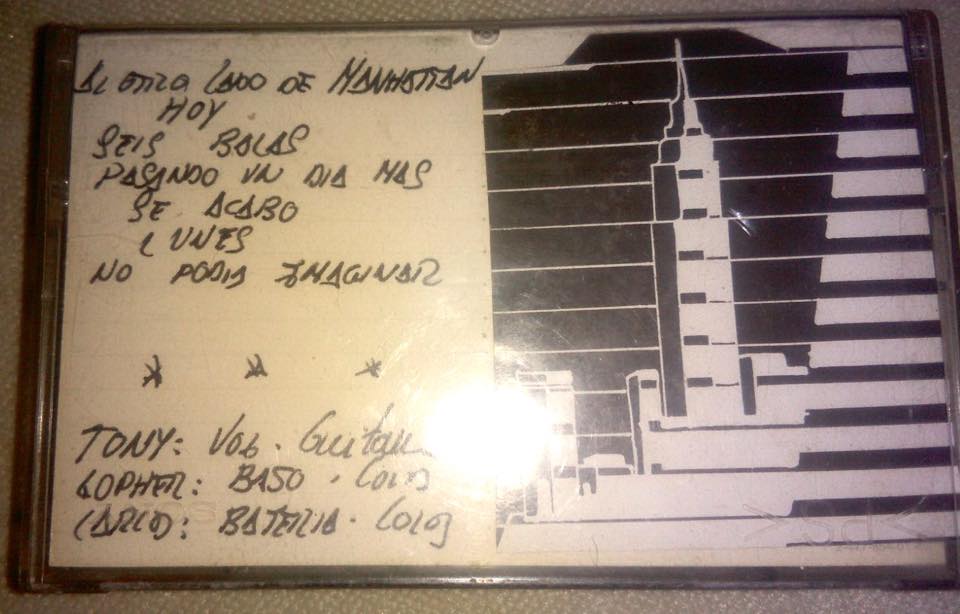 AL OTRO LADO DE MANHATTAN
HOY
SEIS BALAS
PASANDO UN DIA MAS
SE ACABO
LUNES
NO PODIA IMAGINAR
* * *
TONY: VOZ. Guitarra
GOPHER: BAJO. COROS
CARLOS: BATERIA. COROS